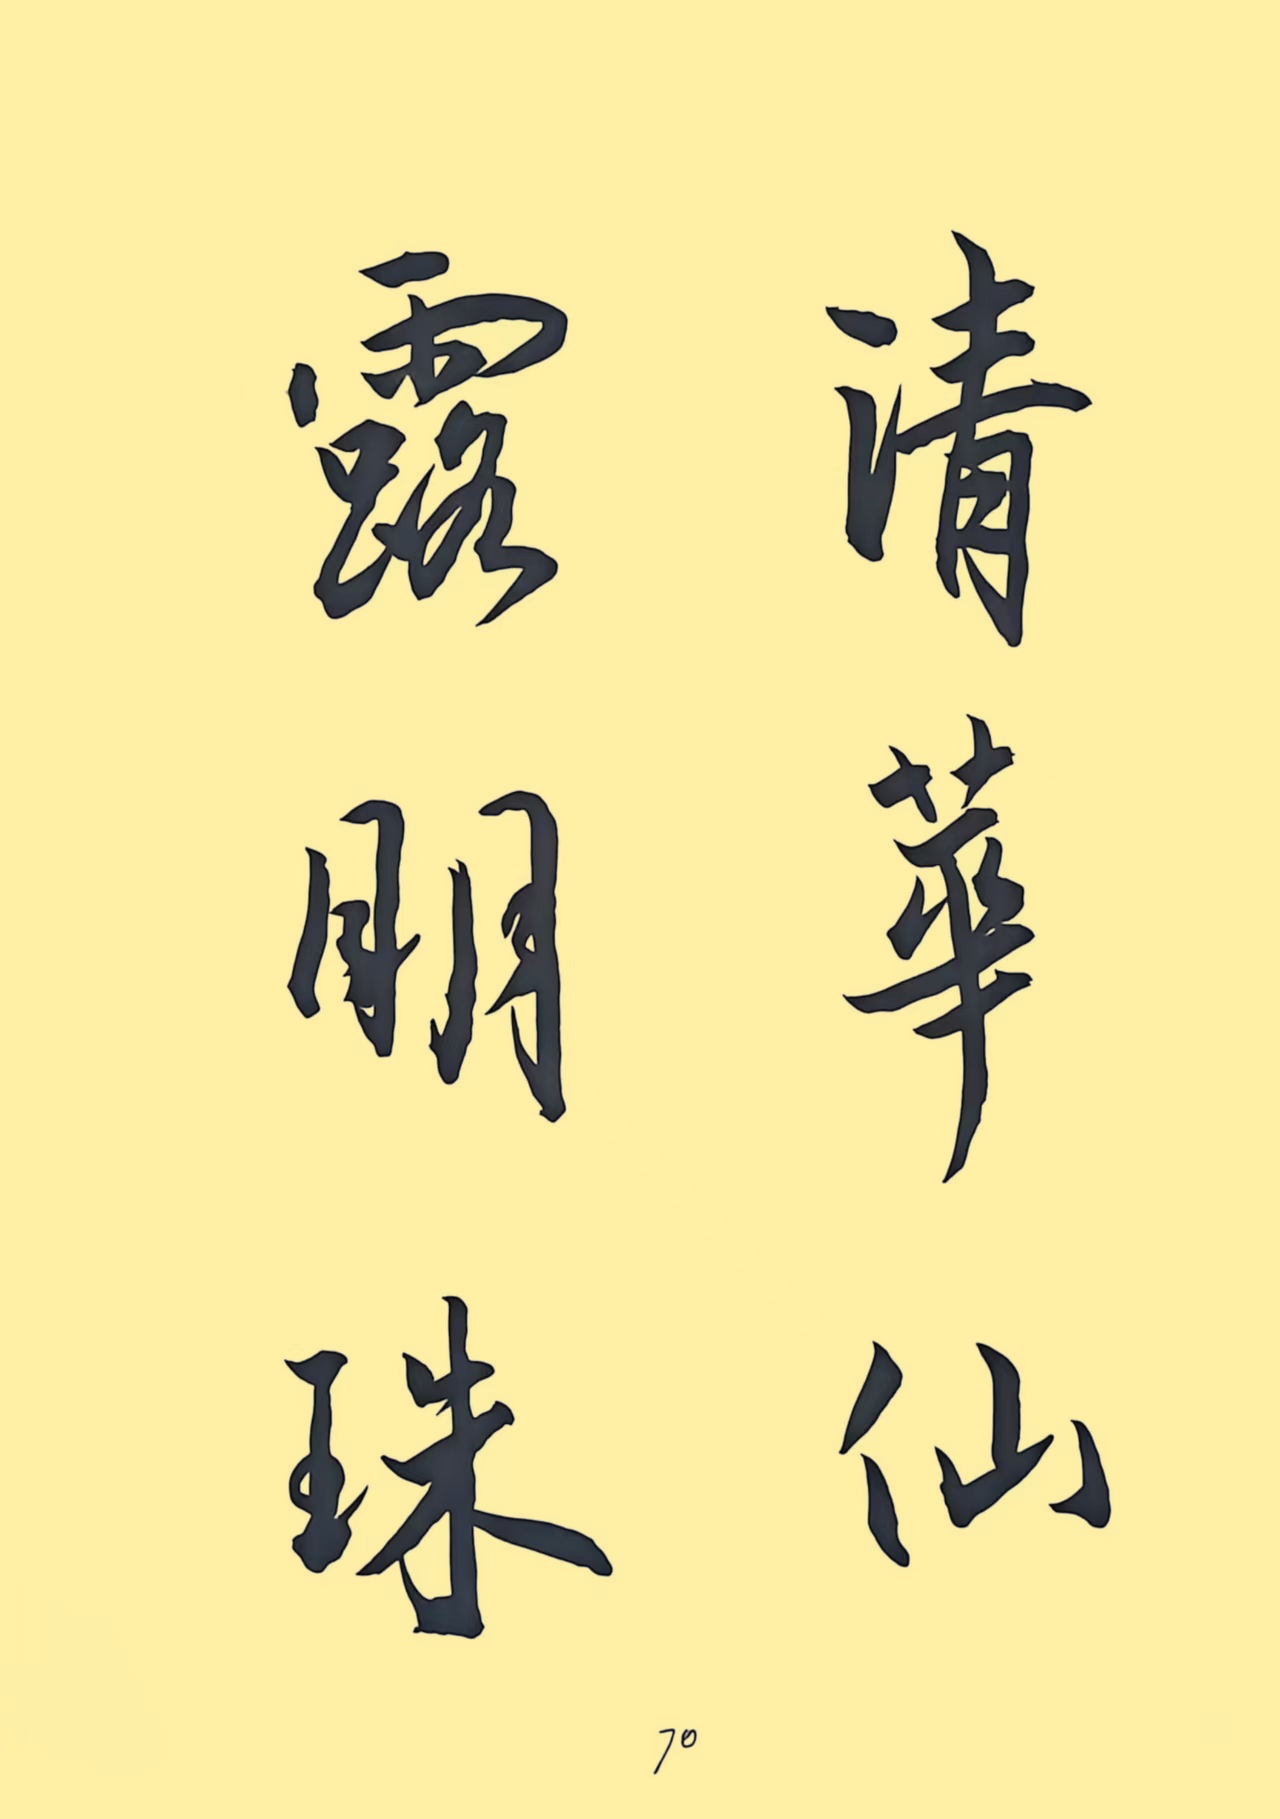 清華仙
露明珠
70